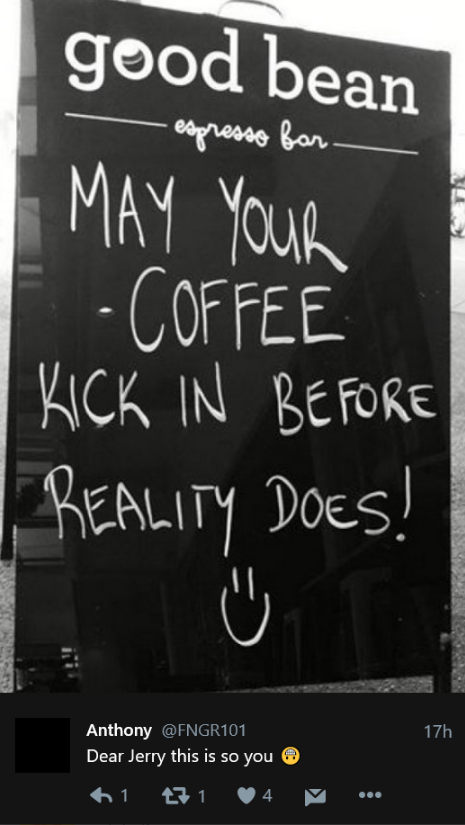 good bean
espresso bar
MAY YOUR
COFFEE
KICK IN BEFORE
REALITY DOES!
Anthony @FNGR101 17h
Dear Jerry this is so you
1 1 4